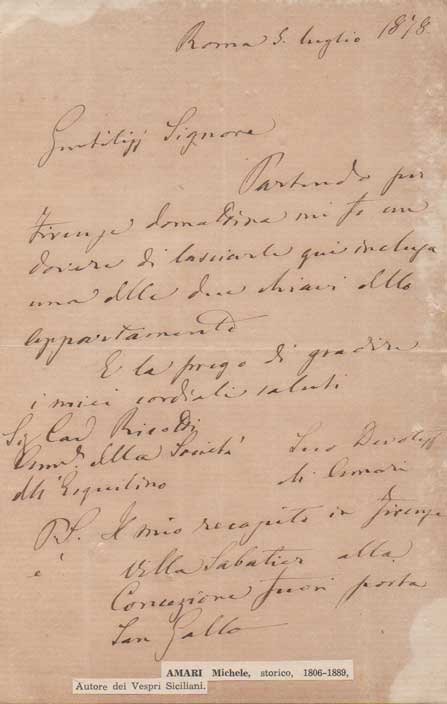 Roma 5. luglio 1878
Gentiliss Signore
Partendo per
Firenze domattina mi fo un
dovere di lasciarle qui inclusa
una delle due chiavi dello
appartamento
E la prego di gradire
i miei cordiali saluti
Sig Cav Ricotti
della Società
dell'Esquilino
Suo Devotiss
M. Amari
P.S. Il mio recapito in Firenze
è Villa Sabatier alla
Concezione fuori porta
San Gallo
AMARI Michele, storico, 1806-1889,
Autore dei Vespri Siciliani.